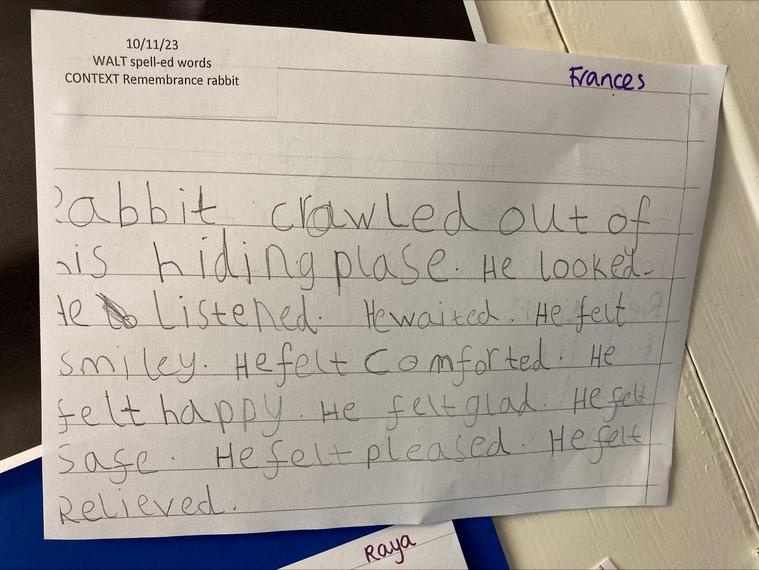 10/11/23
WALT spell-ed words
CONTEXT Remembrance rabbit
Frances
Rabbit crawled out of
his hiding plase. He looked.
He Listened. He waited. He felt
smiley. He felt Comforted. He
felt happy. He felt glad. He felt
Safe. He felt pleased. He felt
Relieved.
Raya